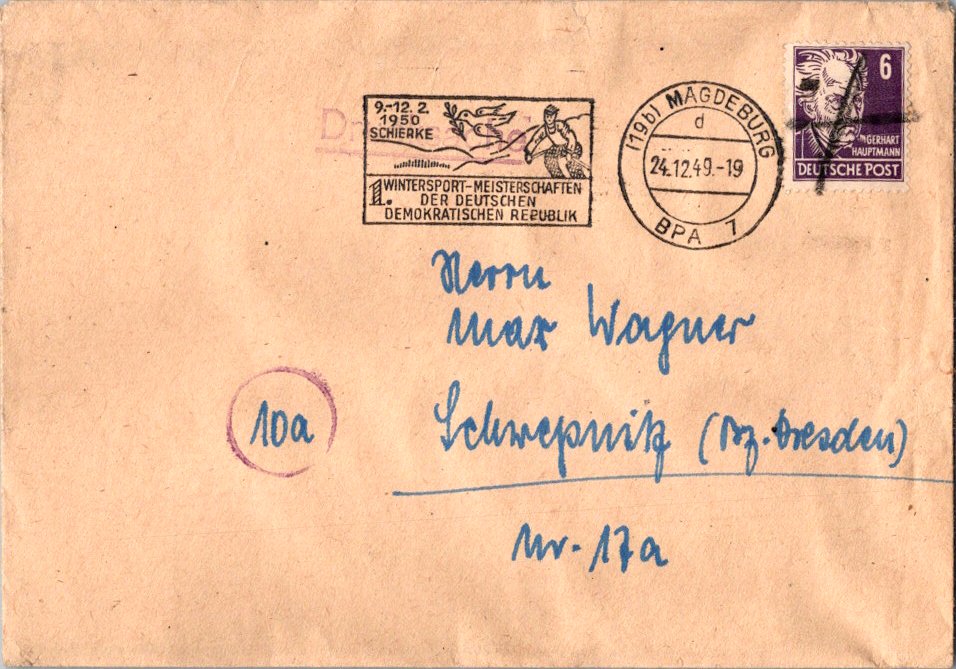 9.-12. 2.
1950
SCHIERKE
1. WINTERSPORT-MEISTERSCHAFTEN
DER DEUTSCHEN
DEMOKRATISCHEN REPUBLIK
(19b) MAGDEBURG
d
24.12.49.-19
BPA 7
6
GERHART
HAUPTMANN
DEUTSCHE POST
Herrn
Max Wagner
10a
Schwepnitz (Bz. Dresden)
Nr. 17a